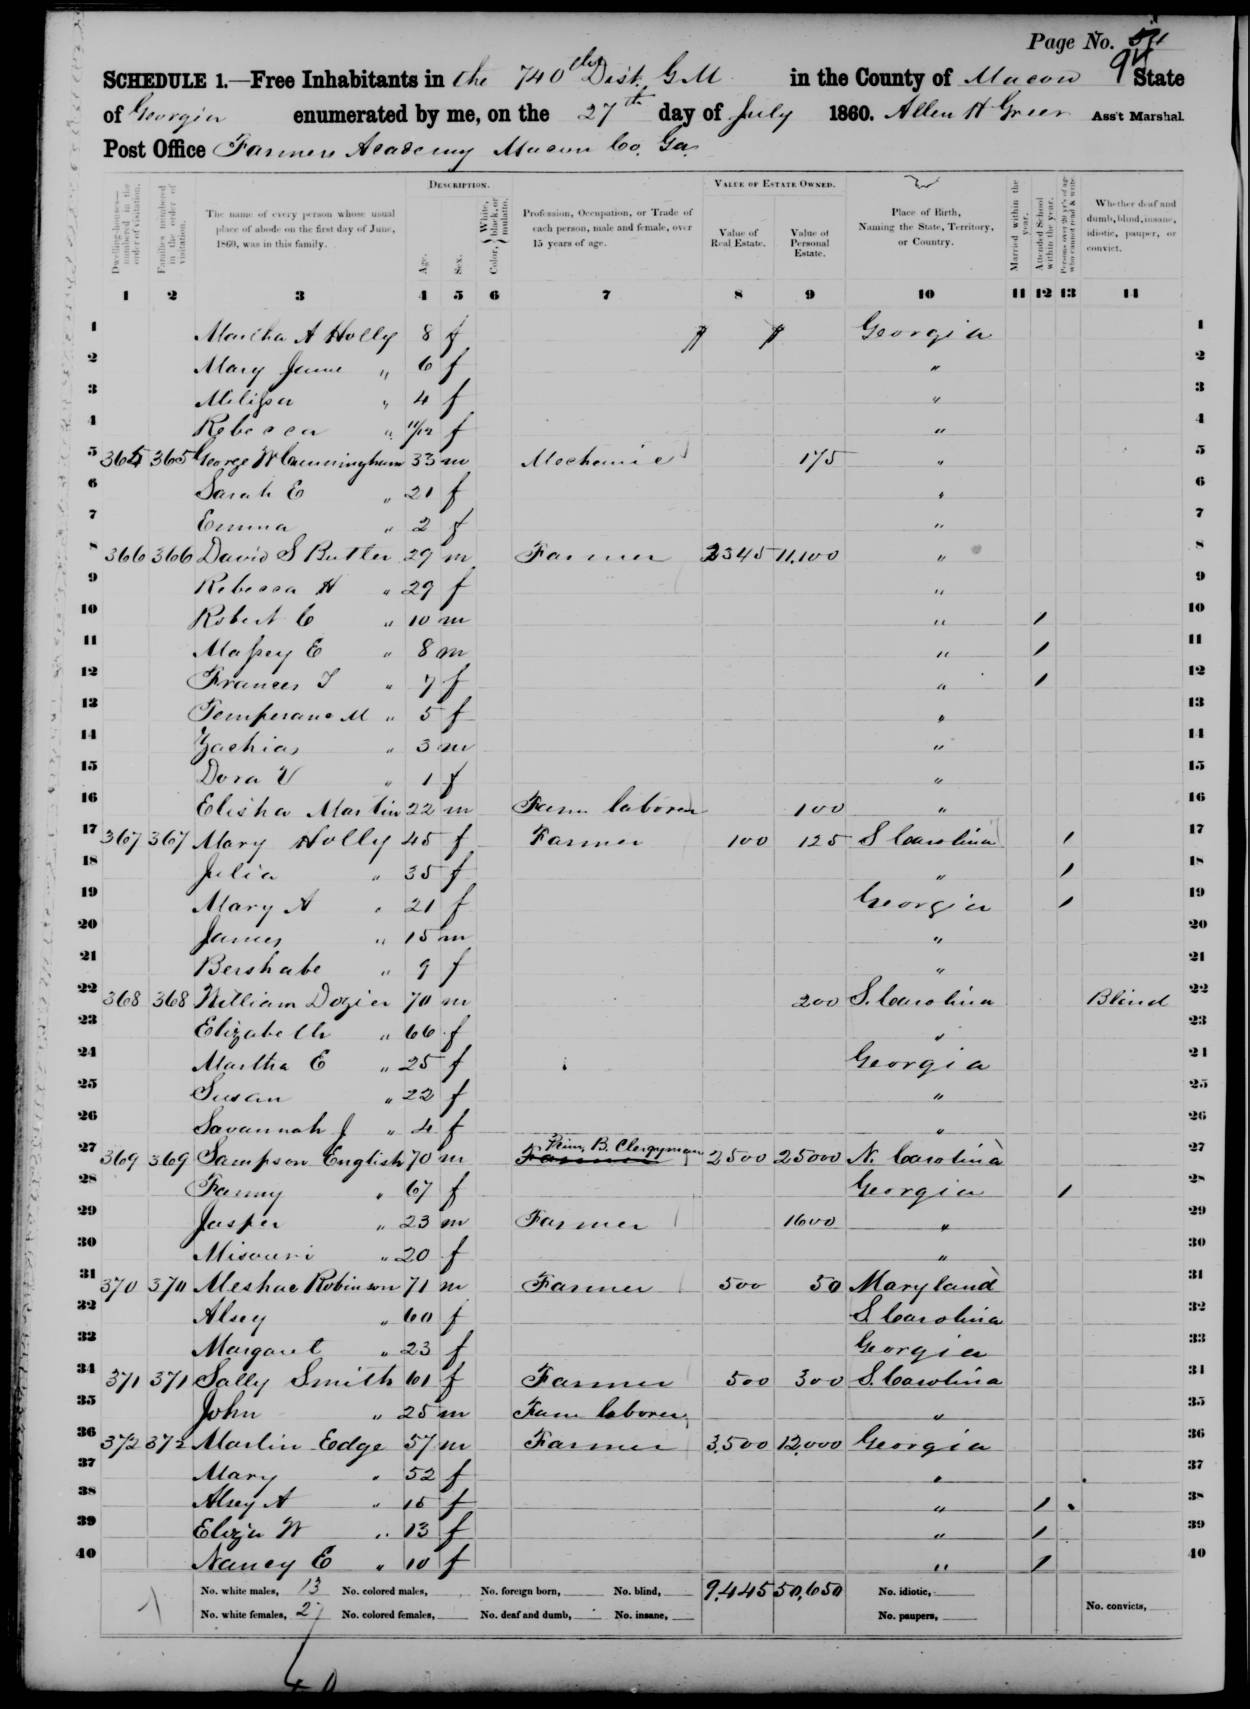 Page No. 94
SCHEDULE 1.—Free Inhabitants in the 740th Dist. G M in the County of Macon State
of Georgia enumerated by me, on the 27th day of July 1860. Allen H Greer Ass't Marshal.
Post Office Farmers Academy Macon Co. Ga.
DESCRIPTION. VALUE OF ESTATE OWNED.
Dwelling-houses—numbered in the order of visitation. Families numbered in the order of visitation. The name of every person whose usual place of abode on the first day of June, 1860, was in this family. Age. Sex. Color, { White, black, or mulatto. Profession, Occupation, or Trade of each person, male and female, over 15 years of age. Value of Real Estate. Value of Personal Estate. Place of Birth, Naming the State, Territory, or Country. Married within the year. Attended School within the year. Persons over 20 y'rs of age who cannot read & write. Whether deaf and dumb, blind, insane, idiotic, pauper, or convict.
1 2 3 4 5 6 7 8 9 10 11 12 13 14
1 Martha A Holly 8 f Georgia 1
2 Mary Jane " 6 f " 2
3 Milissa " 4 f " 3
4 Rebecca " 11/12 f " 4
5 365 365 George W Cunningham 33 m Mechanic 175 " 5
6 Sarah E " 21 f " 6
7 Emma " 2 f " 7
8 366 366 David S Butler 29 m Farmer 2345 11,100 " 8
9 Rebecca H " 29 f " 9
10 Robert C " 10 m " / 10
11 Massey E " 8 m " / 11
12 Frances T " 7 f " / 12
13 Temperanc M " 5 f " 13
14 Zachias " 3 m " 14
15 Dora V " 1 f " 15
16 Elisha Martin 22 m Farm laborer 100 " 16
17 367 367 Mary Holly 45 f Farmer 100 125 S Carolina / 17
18 Julia " 35 f " / 18
19 Mary A " 21 f Georgia / 19
20 James " 15 m " 20
21 Bershabe " 9 f " 21
22 368 368 William Dozier 70 m 200 S. Carolina Blind 22
23 Elizabeth " 66 f " 23
24 Martha E " 25 f Georgia 24
25 Susan " 22 f " 25
26 Savannah J " 4 f " 26
27 369 369 Sampson English 70 m Prim. B. Clergyman Farmer 2500 25000 N. Carolina 27
28 Fanny " 67 f Georgia / 28
29 Jasper " 23 m Farmer 1600 " 29
30 Misouri " 20 f " 30
31 370 370 Meshac Robinson 71 m Farmer 500 50 Maryland 31
32 Alsey " 60 f S. Carolina 32
33 Margaret " 23 f Georgia 33
34 371 371 Sally Smith 61 f Farmer 500 300 S. Carolina 34
35 John " 25 m Farm laborer " 35
36 372 372 Martin Edge 57 m Farmer 3,500 12,000 Georgia 36
37 Mary " 52 f " 37
38 Alsey A " 15 f " / 38
39 Eliza W " 13 f " / 39
40 Nancy E " 10 f " / 40
No. white males, 13 No. colored males, No. foreign born, No. blind, 9,445 50,650 No. idiotic,
No. white females, 27 No. colored females, No. deaf and dumb, No. insane, No. paupers, No. convicts,
40